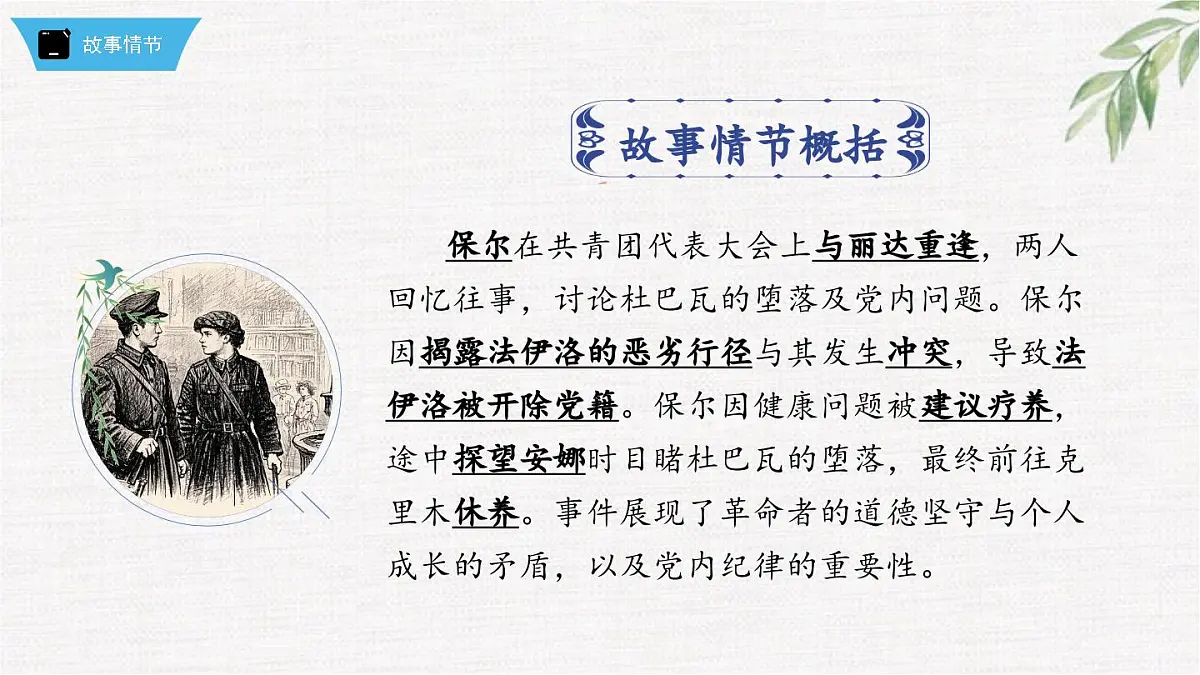 故事情节
故事情节概括
保尔在共青团代表大会上与丽达重逢，两人
回忆往事，讨论杜巴瓦的堕落及党内问题。保尔
因揭露法伊洛的恶劣行径与其发生冲突，导致法
伊洛被开除党籍。保尔因健康问题被建议疗养，
途中探望安娜时目睹杜巴瓦的堕落，最终前往克
里木休养。事件展现了革命者的道德坚守与个人
成长的矛盾，以及党内纪律的重要性。